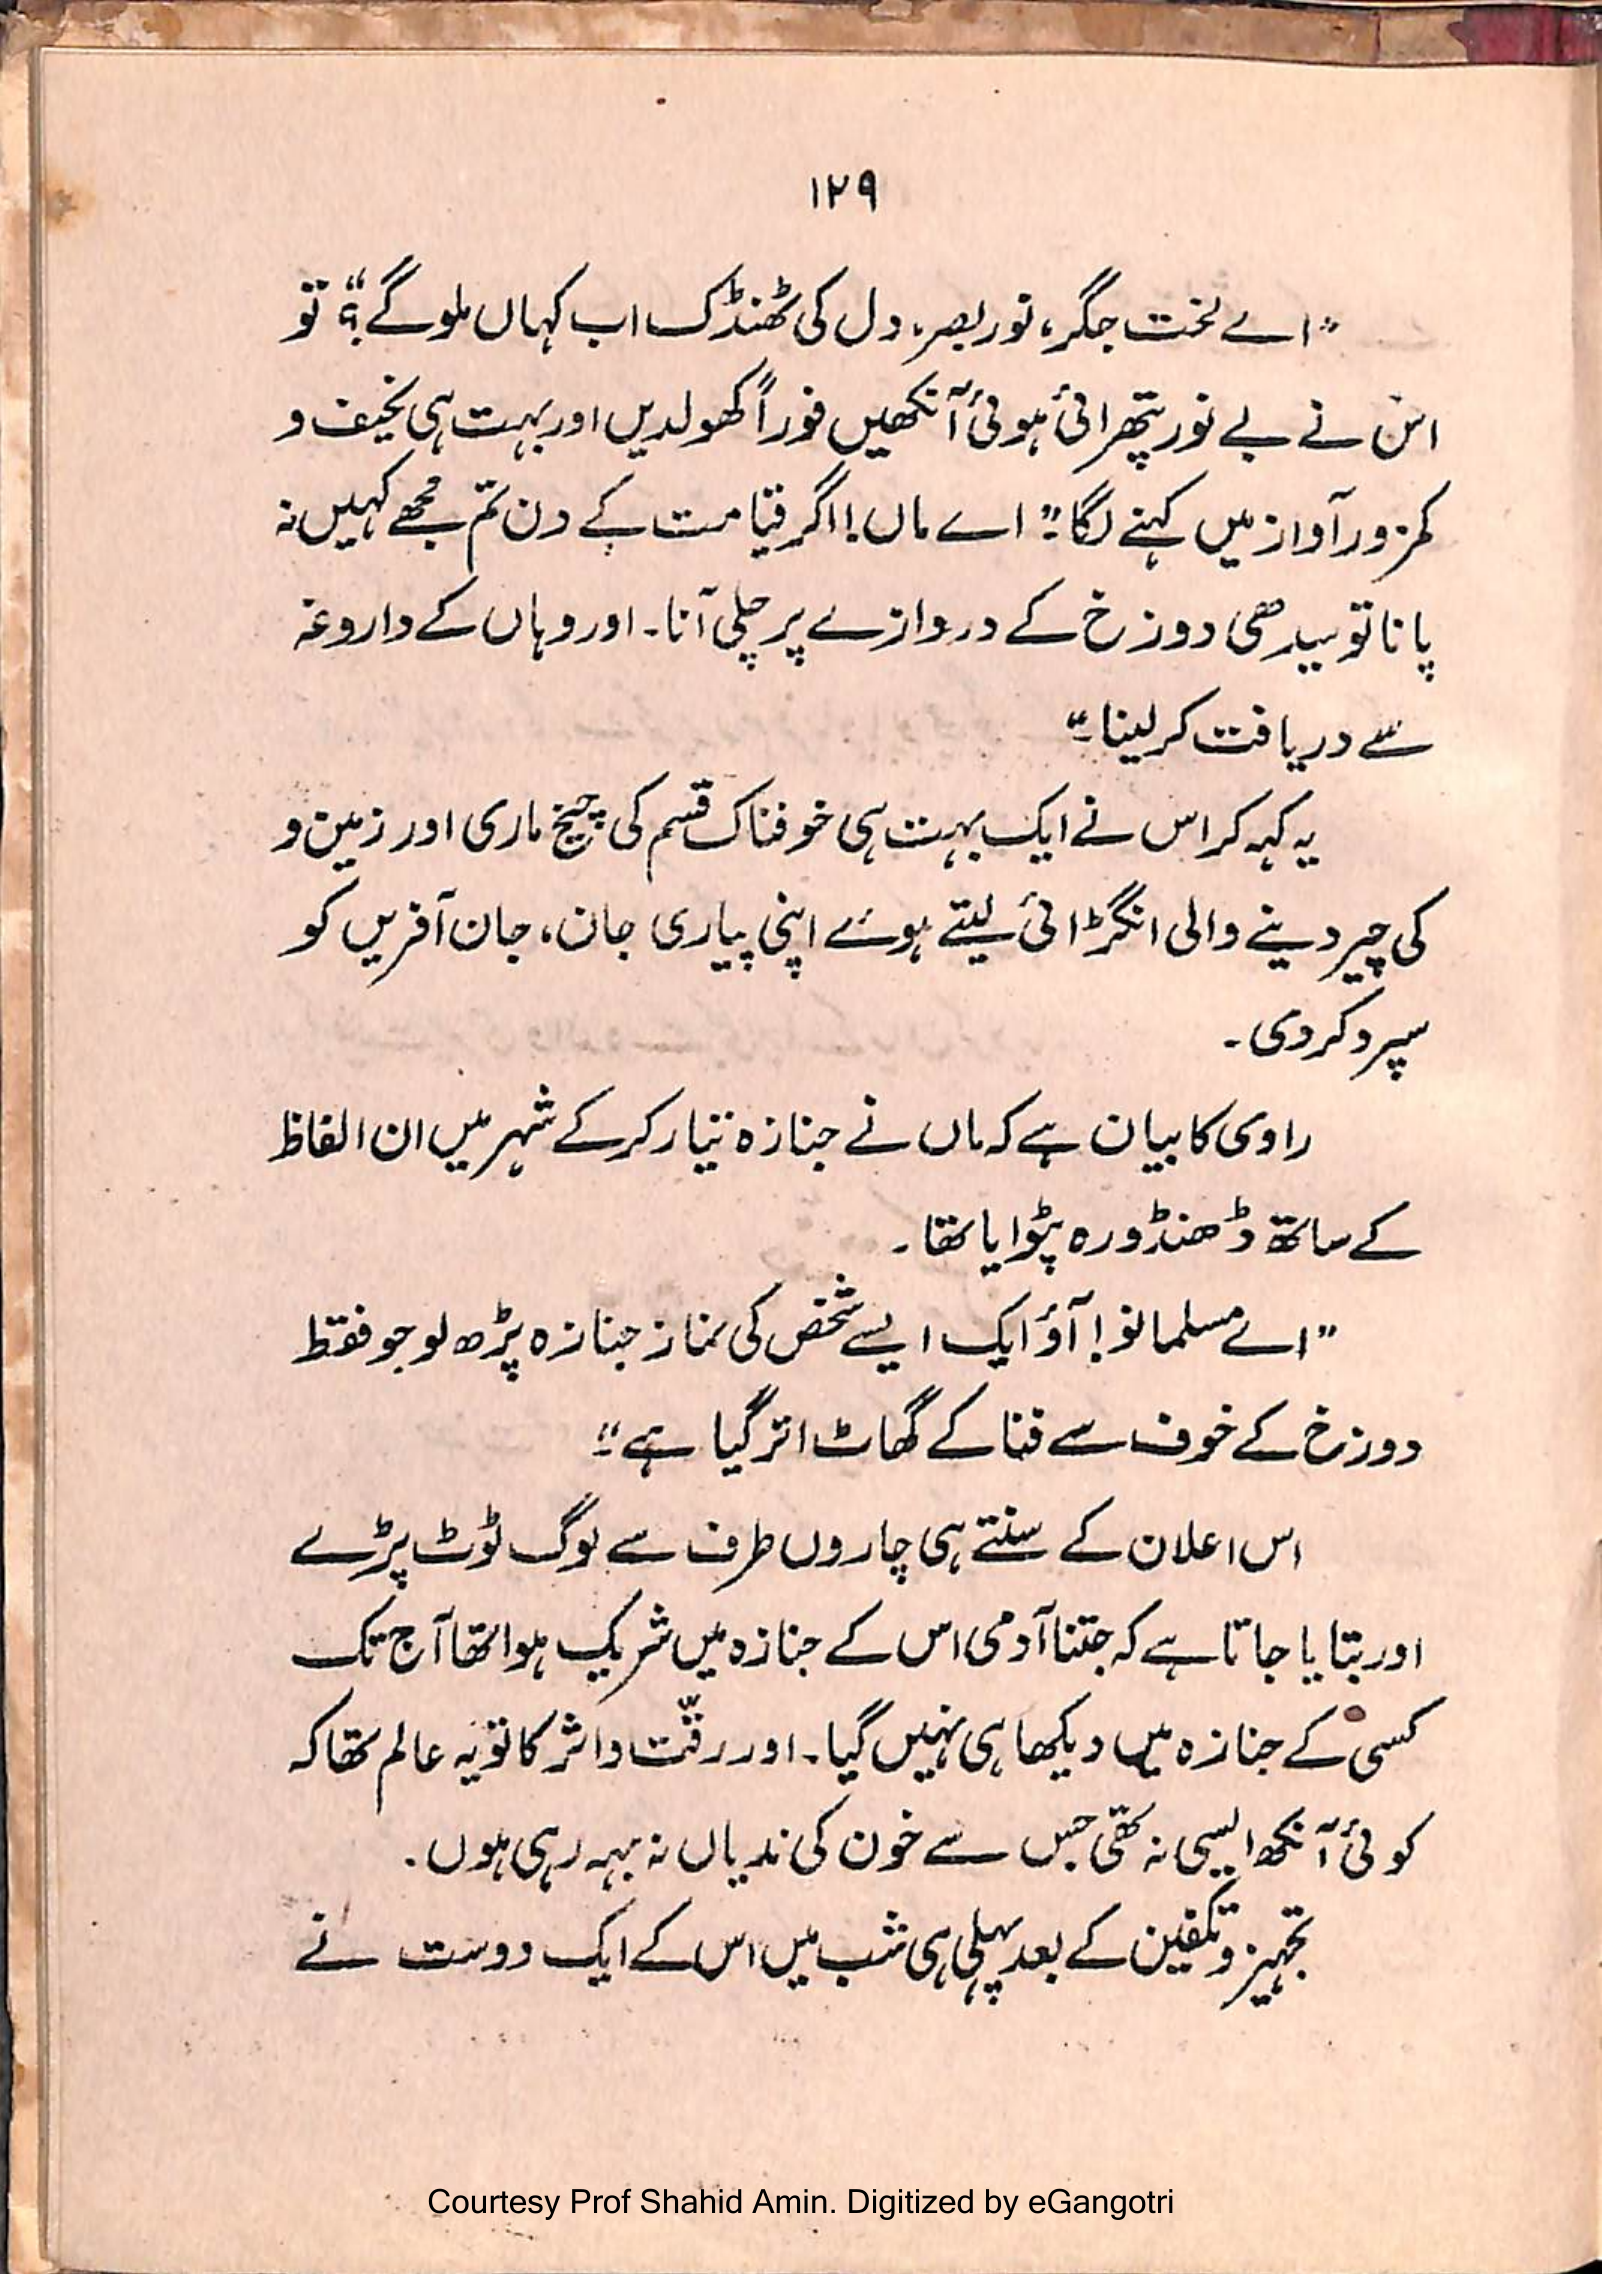 ۱۲۹
"اے لخت جگر، نور بصر، دل کی ٹھنڈک اب کہاں ملو گے؟" تو
اس نے بے نور پتھرائی ہوئی آنکھیں فوراً کھولدیں اور بہت ہی نحیف و
کمزور آواز میں کہنے لگا۔" اے ماں! اگر قیامت کے دن تم مجھے کہیں نہ
پانا تو سیدھی دوزخ کے دروازے پر چلی آنا۔ اور وہاں کے داروغہ
سے دریافت کر لینا۔"
یہ کہہ کر اس نے ایک بہت ہی خوفناک قسم کی چیخ ماری اور زمین و
کی چیر دینے والی انگڑائی لیتے ہوئے اپنی پیاری جان، جان آفریں کو
سپرد کر دی۔
راوی کا بیان ہے کہ ماں نے جنازہ تیار کر کے شہر میں ان الفاظ
کے ساتھ ڈھنڈورہ پٹوایا تھا۔
"اے مسلمانو! آؤ ایک ایسے شخص کی نماز جنازہ پڑھ لو جو فقط
دوزخ کے خوف سے فنا کے گھاٹ اتر گیا ہے۔"
اس اعلان کے سنتے ہی چاروں طرف سے لوگ ٹوٹ پڑے
اور بتایا جاتا ہے کہ جتنا آدمی اس کے جنازہ میں شریک ہوا تھا آج تک
کسی کے جنازہ میں دیکھا ہی نہیں گیا۔ اور رقّت و اثر کا تو یہ عالم تھا کہ
کوئی آنکھ ایسی نہ تھی جس سے خون کی ندیاں نہ بہہ رہی ہوں۔
تجہیز و تکفین کے بعد پہلی ہی شب میں اس کے ایک دوست نے
Courtesy Prof Shahid Amin. Digitized by eGangotri